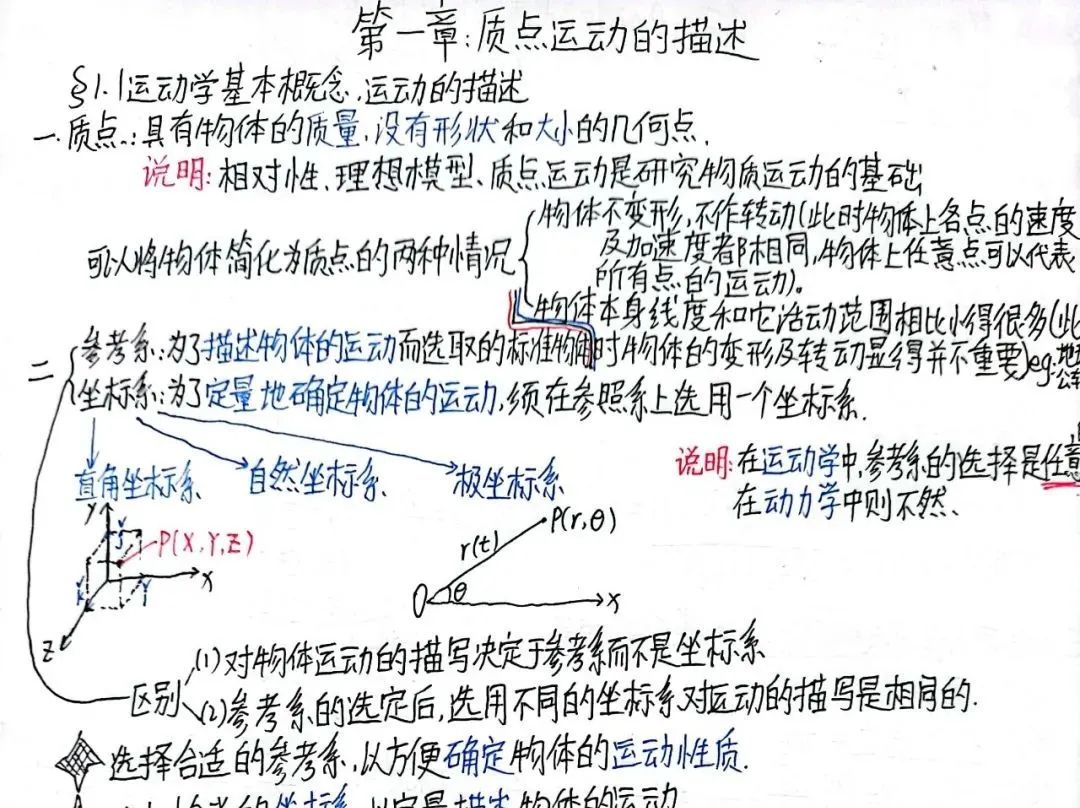 第一章:质点运动的描述
§1.1运动学基本概念.运动的描述
一.质点:具有物体的质量,没有形状和大小的几何点.
说明:相对性、理想模型、质点运动是研究物质运动的基础
可以将物体简化为质点的两种情况
物体不变形,不作转动(此时物体上各点的速度
及加速度都相同,物体上任意点可以代表
所有点的运动)。
物体本身线度和它活动范围相比小得很多(此
时物体的变形及转动显得并不重要)eg:地
公
二
参考系:为了描述物体的运动而选取的标准物
坐标系:为了定量地确定物体的运动,须在参照系上选用一个坐标系.
直角坐标系 自然坐标系 极坐标系
说明:在运动学中,参考系的选择是任意
在动力学中则不然、
Y
P(X,Y,Z)
X
Z
P(r,θ)
r(t)
O θ X
区别
(1)对物体运动的描写决定于参考系而不是坐标系
(2)参考系的选定后,选用不同的坐标系对运动的描写是相同的.
选择合适的参考系,以方便确定物体的运动性质.
坐标系,以定量描述物体的运动